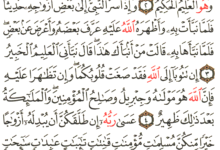 وَهُوَ ٱلْعَلِيمُ ٱلْحَكِيمُ ٢ وَإِذْ أَسَرَّ ٱلنَّبِىُّ إِلَىٰ بَعْضِ أَزْوَٰجِهِۦ حَدِيثًا
فَلَمَّا نَبَّأَتْ بِهِۦ وَأَظْهَرَهُ ٱللَّهُ عَلَيْهِ عَرَّفَ بَعْضَهُۥ وَأَعْرَضَ عَنۢ بَعْضٍ
فَلَمَّا نَبَّأَهَا بِهِۦ قَالَتْ مَنْ أَنۢبَأَكَ هَٰذَا قَالَ نَبَّأَنِىَ ٱلْعَلِيمُ ٱلْخَبِيرُ
٣ إِن تَتُوبَآ إِلَى ٱللَّهِ فَقَدْ صَغَتْ قُلُوبُكُمَا وَإِن تَظَٰهَرَا عَلَيْهِ
فَإِنَّ ٱللَّهَ هُوَ مَوْلَىٰهُ وَجِبْرِيلُ وَصَٰلِحُ ٱلْمُؤْمِنِينَ وَٱلْمَلَٰٓئِكَةُ
بَعْدَ ذَٰلِكَ ظَهِيرٌ ٤ عَسَىٰ رَبُّهُۥٓ إِن طَلَّقَكُنَّ أَن يُبْدِلَهُۥٓ أَزْوَٰجًا
خَيْرًا مِّنكُنَّ مُسْلِمَٰتٍ مُّؤْمِنَٰتٍ قَٰنِتَٰتٍ تَٰٓئِبَٰتٍ عَٰبِدَٰتٍ سَٰٓئِحَٰتٍ